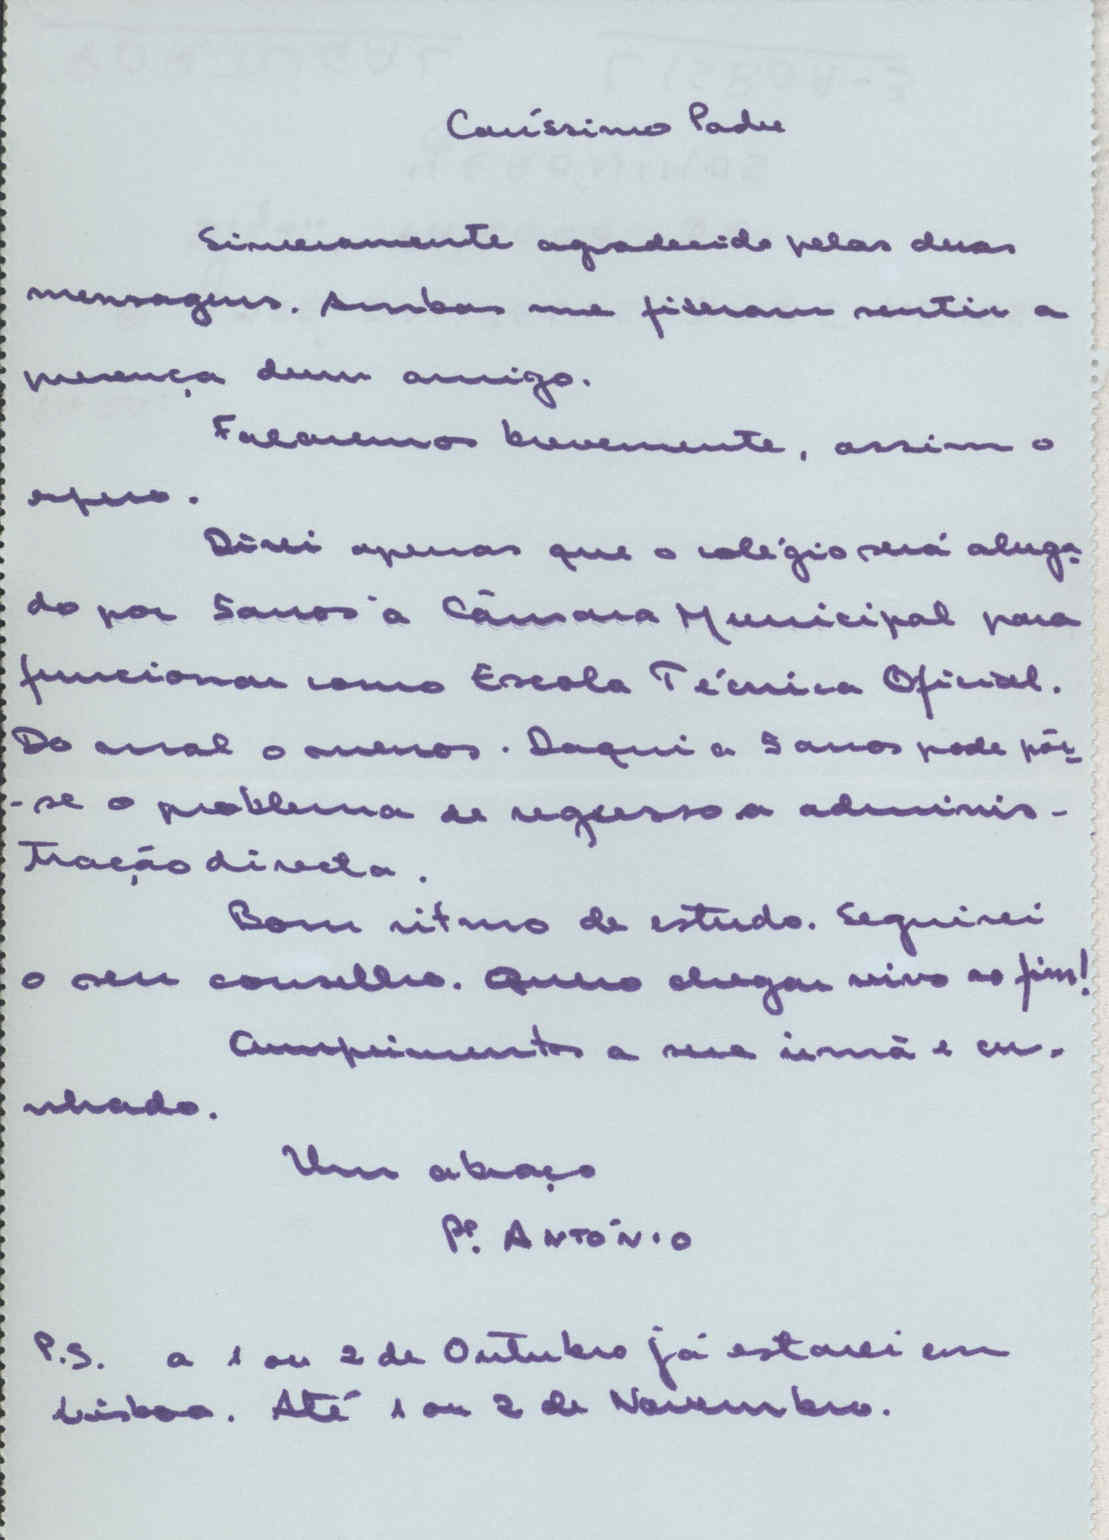 Caríssimo Padre
Sinceramente agradecido pelas duas
mensagens. Ambas me fizeram sentir a
presença dum amigo.
Falaremos brevemente, assim o
espero.
Direi apenas que o colégio será aluga-
do por 5 anos à Câmara Municipal para
funcionar como Escola Técnica Oficial.
Do mal o menos. Daqui a 5 anos pode pôr-
-se o problema de regresso a adminis-
tração directa.
Bom ritmo de estudo. Seguirei
o seu conselho. Quero chegar vivo ao fim!
Cumprimentos a sua irmã e cu-
nhado.
Um abraço
Pe. ANTÓNIO
P.S. a 1 ou 2 de Outubro já estarei em
Lisboa. Até 1 ou 2 de Novembro.